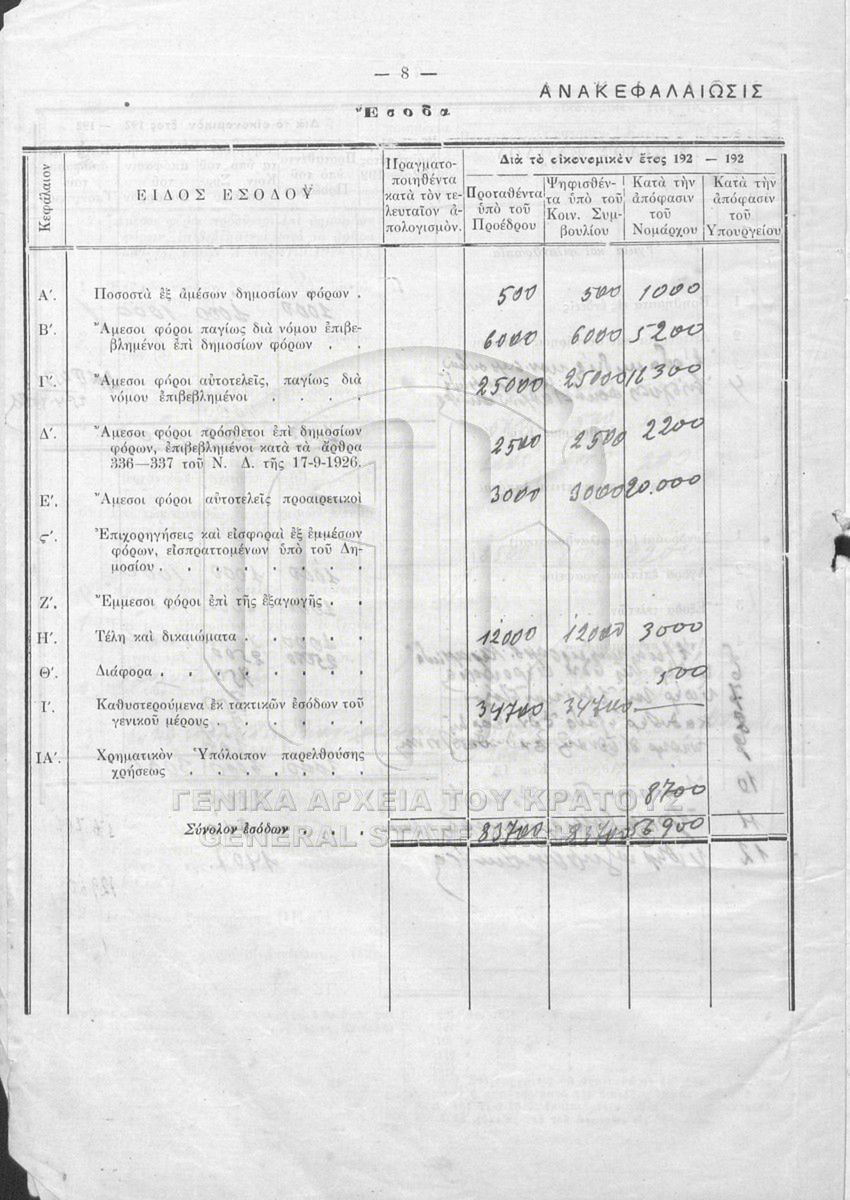 — 8 —
ΑΝΑΚΕΦΑΛΑΙΩΣΙΣ
Ἔσοδα
Κεφάλαιον
ΕΙΔΟΣ ΕΣΟΔΟΥ
Πραγματο-
ποιηθέντα
κατὰ τὸν τε-
λευταῖον ἀ-
πολογισμόν.
Διὰ τὸ οἰκονομικὸν ἔτος 192 — 192
Προταθέντα
ὑπὸ τοῦ
Προέδρου
Ψηφισθέν-
τα ὑπὸ τοῦ
Κοιν. Συμ-
βουλίου
Κατὰ τὴν
ἀπόφασιν
τοῦ
Νομάρχου
Κατὰ τὴν
ἀπόφασιν
τοῦ
Ὑπουργείου
Α΄. Ποσοστὰ ἐξ ἀμέσων δημοσίων φόρων . 500 500 1000
Β΄. Ἄμεσοι φόροι παγίως διὰ νόμου ἐπιβε-
βλημένοι ἐπὶ δημοσίων φόρων . . 6000 6000 5200
Γ΄. Ἄμεσοι φόροι αὐτοτελεῖς, παγίως διὰ
νόμου ἐπιβεβλημένοι . . . . 25000 25000 16300
Δ΄. Ἄμεσοι φόροι πρόσθετοι ἐπὶ δημοσίων
φόρων, ἐπιβεβλημένοι κατὰ τὰ ἄρθρα
336—337 τοῦ Ν. Δ. τῆς 17-9-1926. 2500 2500 2200
Ε΄. Ἄμεσοι φόροι αὐτοτελεῖς προαιρετικοὶ 3000 3000 20.000
ς΄. Ἐπιχορηγήσεις καὶ εἰσφοραὶ ἐξ ἐμμέσων
φόρων, εἰσπραττομένων ὑπὸ τοῦ Δη-
μοσίου . . . . . . . .
Ζ΄. Ἔμμεσοι φόροι ἐπὶ τῆς ἐξαγωγῆς . .
Η΄. Τέλη καὶ δικαιώματα . . . . . 12000 12000 3000
Θ΄. Διάφορα . . . . . . . . 500
Ι΄. Καθυστερούμενα ἐκ τακτικῶν ἐσόδων τοῦ
γενικοῦ μέρους . . . . . . 34700 34700 —
ΙΑ΄. Χρηματικὸν Ὑπόλοιπον παρελθούσης
χρήσεως . . . . . . .
8700
ΓΕΝΙΚΑ ΑΡΧΕΙΑ ΤΟΥ ΚΡΑΤΟΥΣ
Σύνολον ἐσόδων . . . 83700 83700 56900
GENERAL STATE